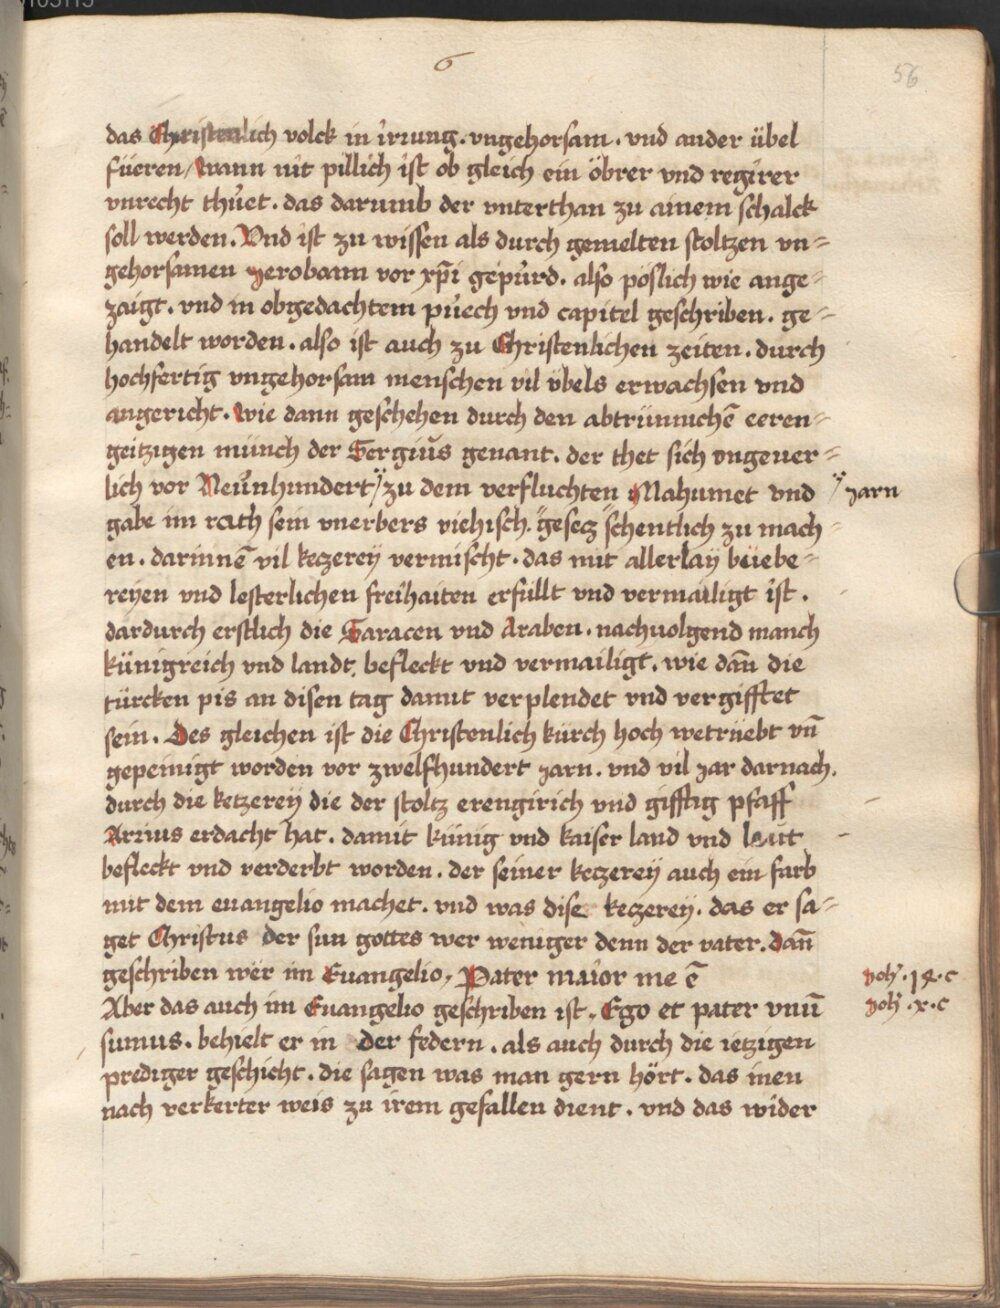 6
56
das Christenlich volck in irrung. vngehorsam. vnd ander übel
füeren / wann nit pillich ist ob gleich ein öbrer vnd regirer
vnrecht thůet. das darumb der vnterthan zu ainem schalck
soll werden. Vnd ist zu wissen als durch gemelten stoltzen vn=
gehorsamen Jeroboam vor xp̄i gepůrd. also pöslich wie ange=
zaigt. vnd in obgedachtem půech vnd capitel geschriben. ge=
handelt worden. also ist auch zu Christenlichen zeiten. durch
hochfertig vngehorsam menschen vil übels erwachsen vnd
angericht. wie dann geschehen durch den abtrünnichē eeren=
geitzigen münch der Sergiůs genant. der thet sich vngeuer=
lich vor Neůnhundert / zu dem verfluchten Mahumet vnd / jarn
gabe im rath sein vnerbers viehisch. gesecz schentlich zu mach=
en. darinnē vil keczerey vermischt. das mit allerlay büebe=
reyen vnd lesterlichen freihaiten erfüllt vnd vermailigt ist.
dardurch erstlich die Saracen vnd Araben. nachuolgend manch
künigreich vnd landt, befleckt vnd vermailigt. wie dañ die
türcken pis an disen tag damit verplendet vnd vergifftet
sein. Des gleichen ist die Christenlich kürch hoch wetrüebt vñ
gepeinigt worden vor zwelfhundert jarn. vnd vil jar darnach.
durch die ketzerey die der stoltz erengirich vnd gifftig pfaff
Arrius erdacht hat. damit künig vnd kaiser land vnd leut
befleckt vnd verderbt worden. der seiner keczerey auch ein farb
mit dem euangelio machet. vnd was dise keczerey. das er sa=
get Christus der sun gottes wer weniger denn der vater. dañ
geschriben wer im Euangelio, Pater maior me ē
Joh. 14. c
Aber das auch im Euangelio geschriben ist. Ego et pater vnū
Joh. x. c
sumus. behielt er in der federn. als auch durch die ietzigen
prediger geschicht. die sagen was man gern hört. das inen
nach verkerter weis zu irem gefallen dient. vnd das wider